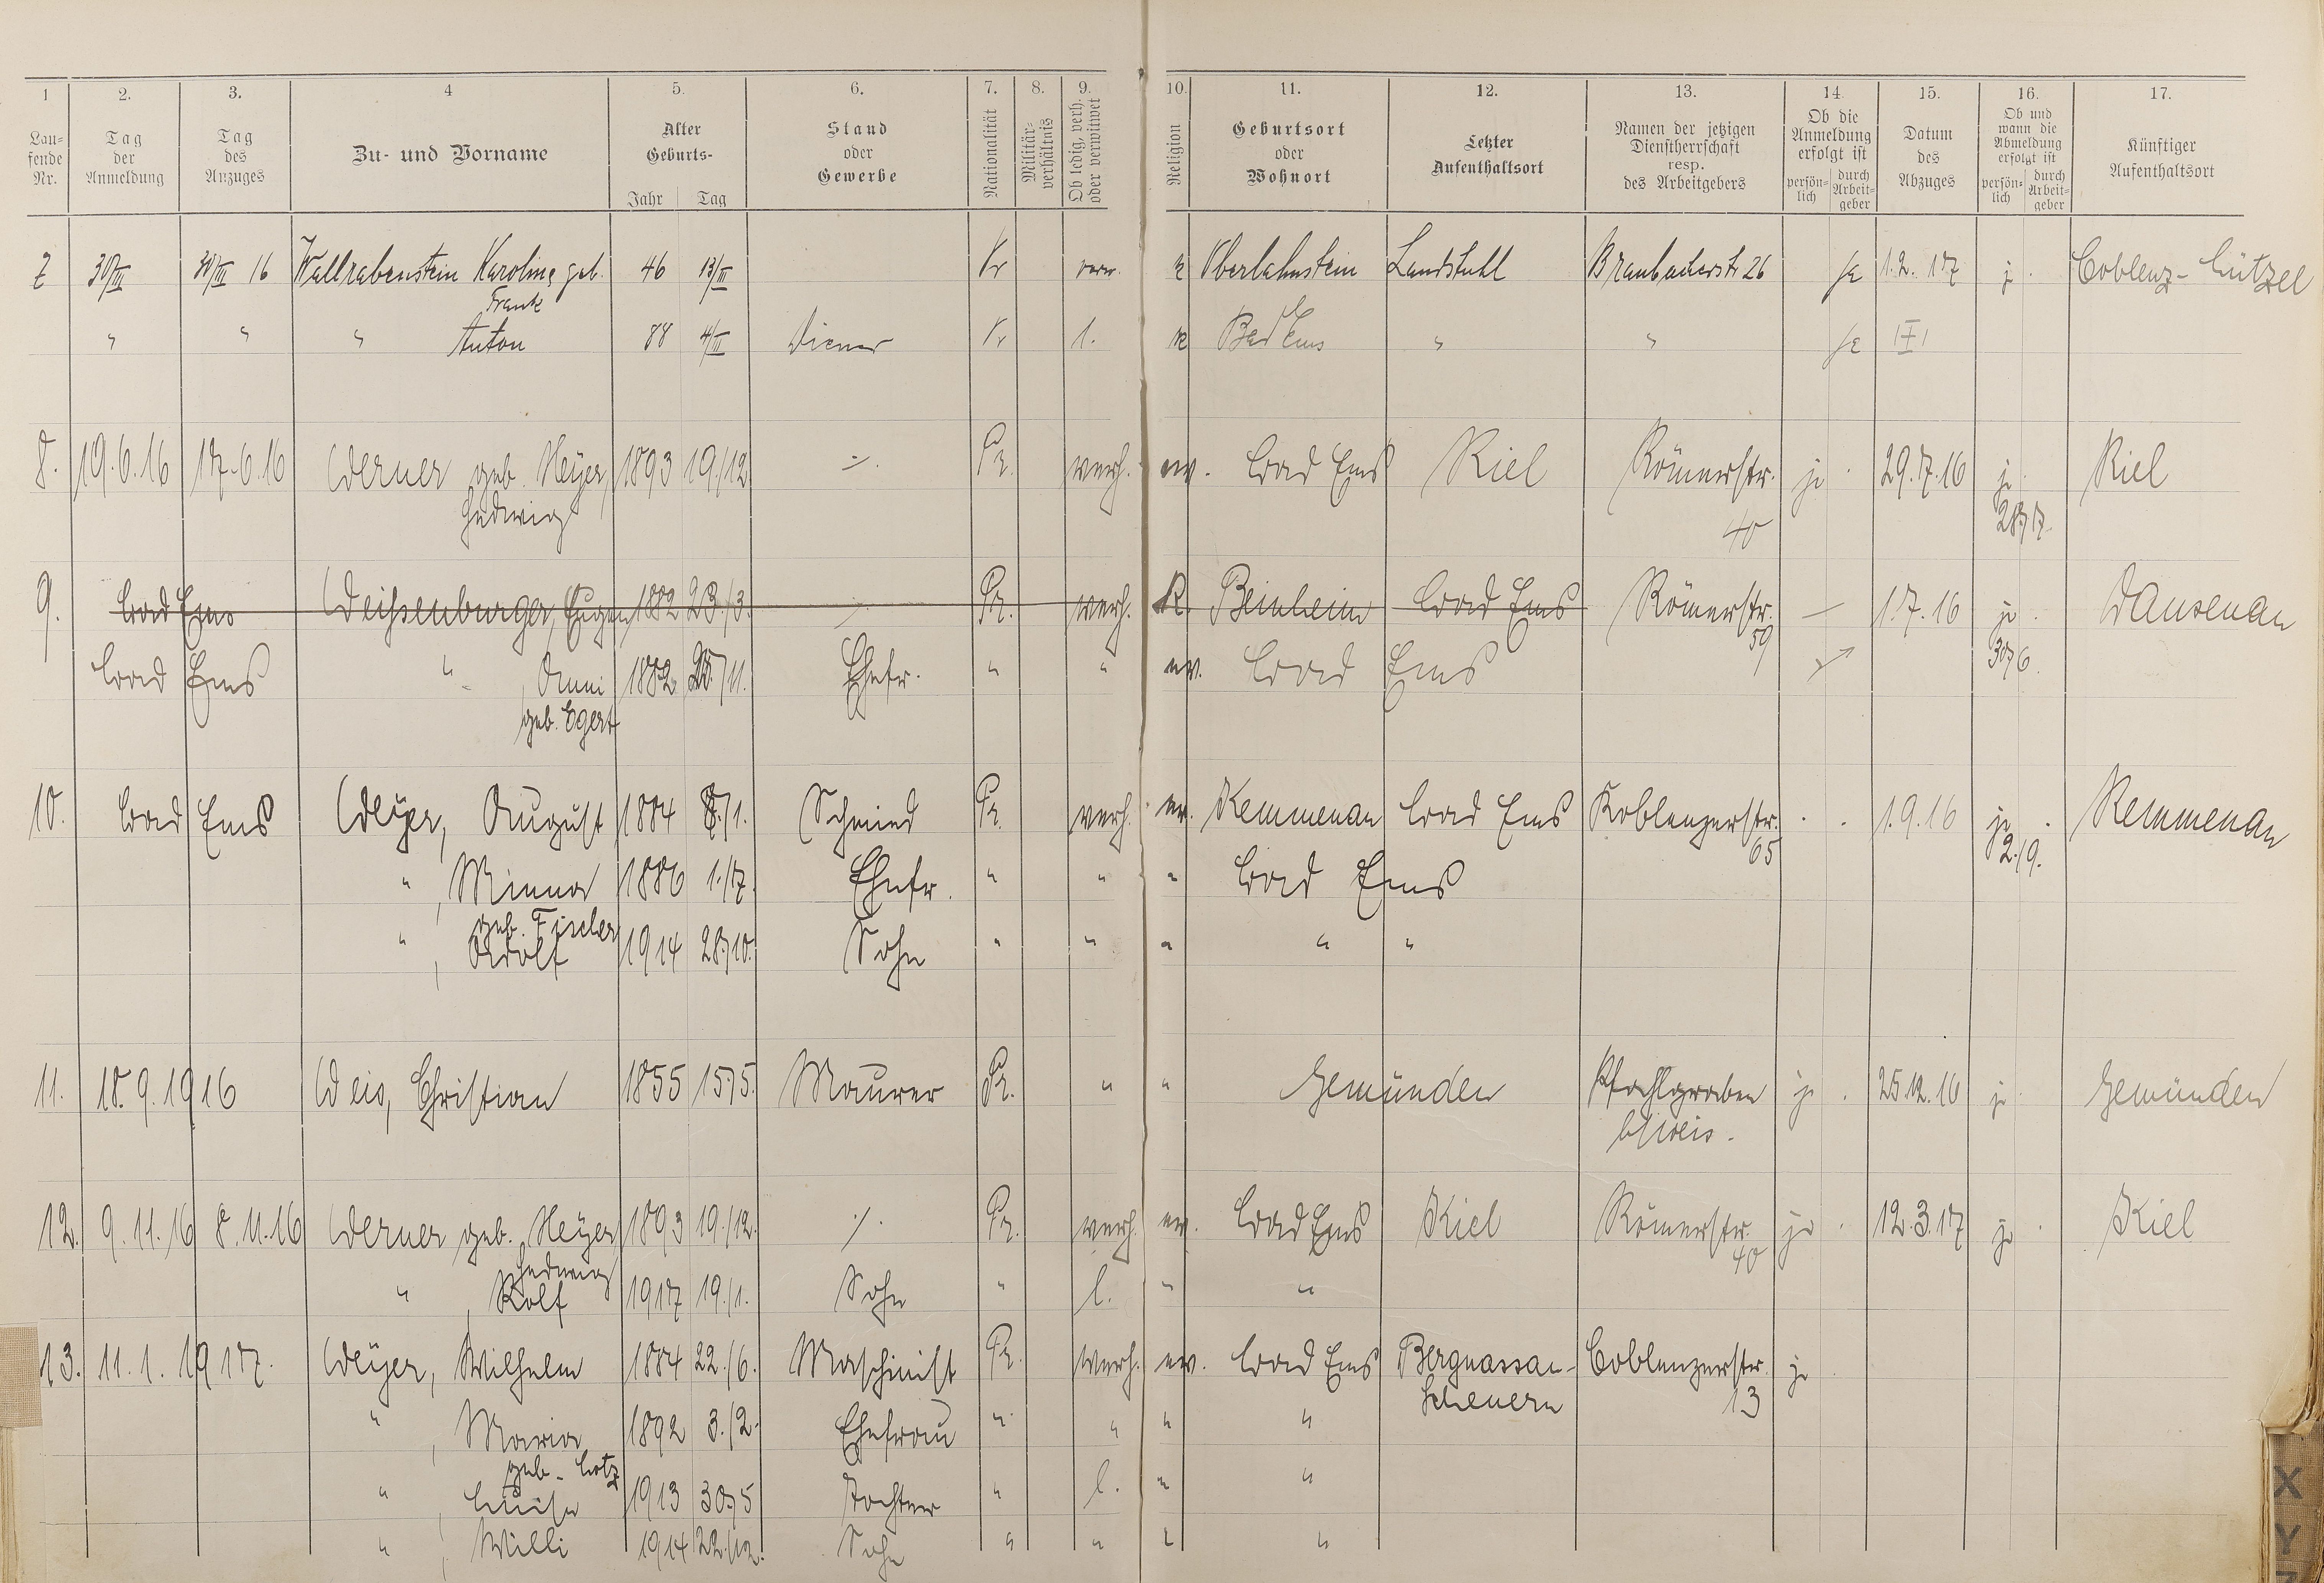 1 2. 3. 4 5. 6. 7. 8. 9. 10. 11. 12. 13. 14. 15. 16. 17.
Lau-
fende
Nr.
Tag
der
Anmeldung
Tag
des
Anzuges
Zu- und Vorname
Alter
Geburts-
Jahr Tag
Stand
oder
Gewerbe
Nationalität
Militär-
verhältnis
Ob ledig, verh.
oder verwitwet
Religion
Geburtsort
oder
Wohnort
Letzter
Aufenthaltsort
Namen der jetzigen
Dienstherrschaft
resp.
des Arbeitgebers
Ob die
Anmeldung
erfolgt ist
persön-
lich
durch
Arbeit-
geber
Datum
des
Abzuges
Ob und
wann die
Abmeldung
erfolgt ist
persön-
lich
durch
Arbeit-
geber
Künftiger
Aufenthaltsort
7 30/III 30/III 16 Wallrabenstein Karoline geb. 46 13/III Pr verw. k Oberlahnstein Landstuhl Braubacherstr. 26 ja 1.2.17 j. Coblenz-Lützel
Frank
" " " Anton 88 4/III Diener Pr l. k Bad Ems " " ja
8. 19.6.16 17.6.16 Werner geb. Meÿer, 1893 19./12. ·/. Pr. verh. ev. Bad Ems Kiel Römerstr. ja · 29.7.16 ja · Kiel
Hedwig 40 28/7.
9. Bad Ems Weißenburger, Eugen 1882 23./3. ·/. Pr. verh. K. Beinheim Bad Ems Römerstr. — 1.7.16 ja · Dausenau
59 30/6.
Bad Ems " , Anni 1882 25./11. Ehefr. " " ev. Bad Ems
geb. Egert
10. Bad Ems Weÿer, August 1884 8./1. Schmied Pr. verh. ev. Kemmenau Bad Ems Koblenzerstr. · · 1.9.16 ja · Kemmenau
65 2./9.
" , Minna 1886 1./7. Ehefr. " " " Bad Ems
geb. Fischer
" , Adolf 1914 28./10. Sohn " " " " "
11. 18.9.1916 Weis, Christian 1855 15./5. Maurer Pr. " " Gemünden Pfahlgraben ja · 25.12.16 ja · Gemünden
b/Weis.
12. 9.11.16 8.11.16 Werner geb. Meÿer 1893 19./12. ·/. Pr. verh. ev. Bad Ems Kiel Römerstr. ja · 12.3.17 ja · Kiel
Hedwig 40
" , Rolf 1917 19./1. Sohn " l. " "
13. 11.1.1917. Weÿer, Wilhelm 1884 22./6. Maschinist Pr. verh. ev. Bad Ems Bergnassau- Coblenzerstr. ja ·
Scheuern 13
" , Maria 1892 3./2. Ehefrau " " " "
geb. Lotz
" , Luise 1913 30./5 Tochter " l. " "
" , Willi 1914 22./12. Sohn " " " "
X
Y
Z